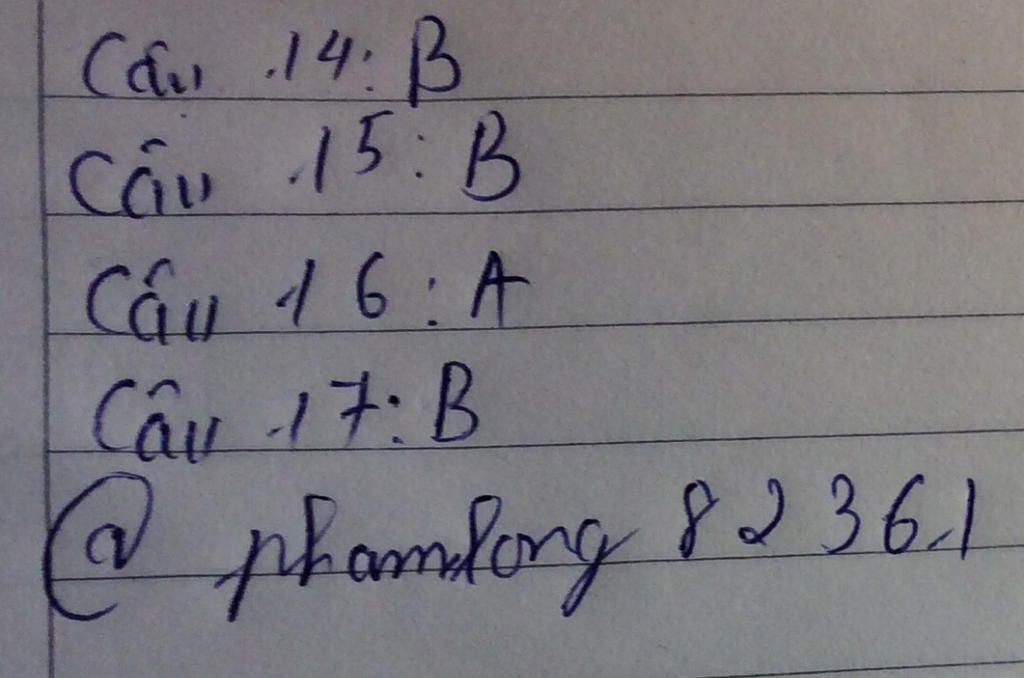 Câu 14: B
Câu 15: B
Câu 16: A
Câu 17: B
@phamlong82361